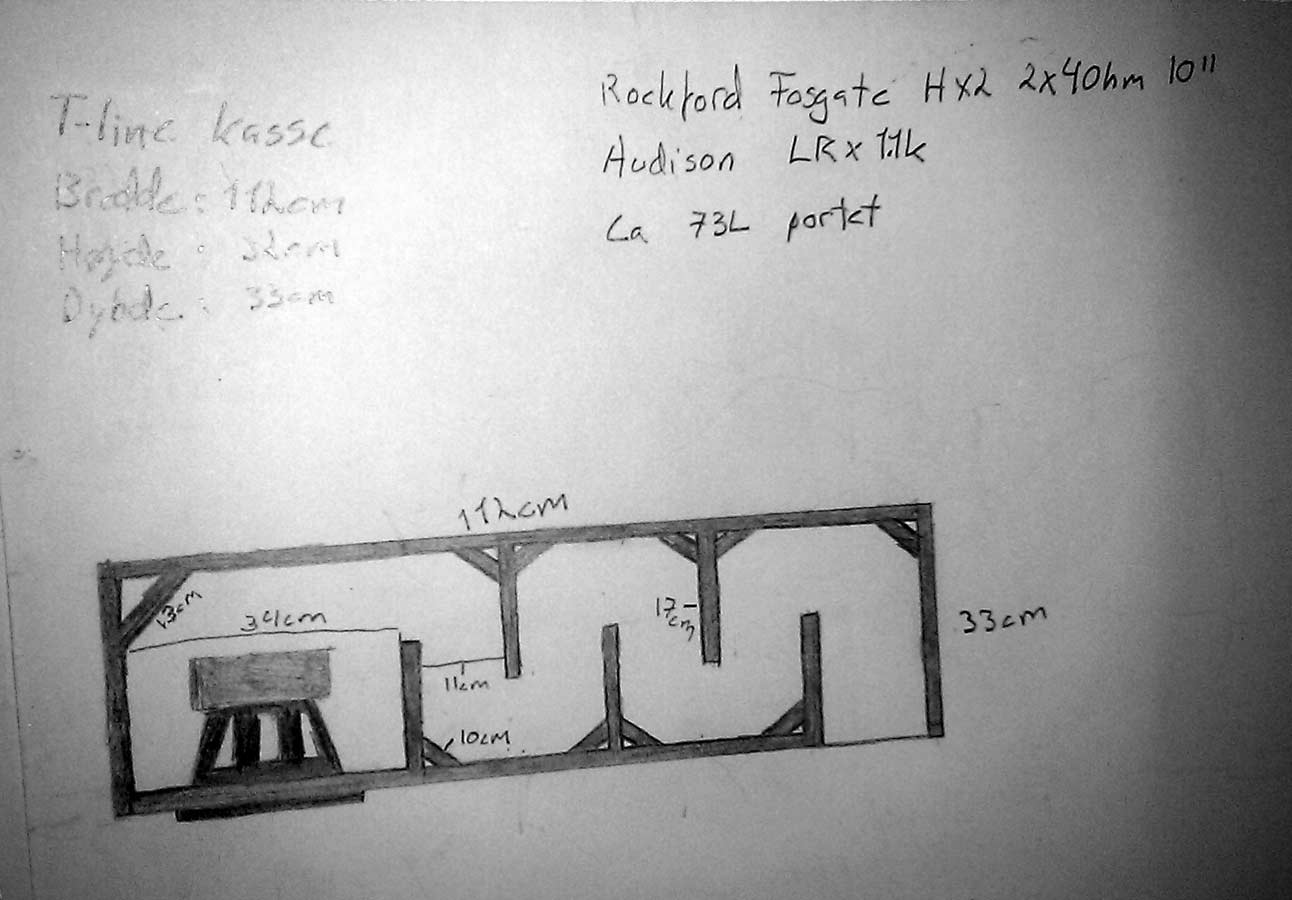 T-line kasse
Bredde: 112cm
Højde: 32cm
Dybde: 33cm
Rockford Fosgate HX2 2x4Ohm 10"
Audison LRx 1.1k
Ca 73L portet
112cm
13cm
34cm
17cm
33cm
11cm
10cm